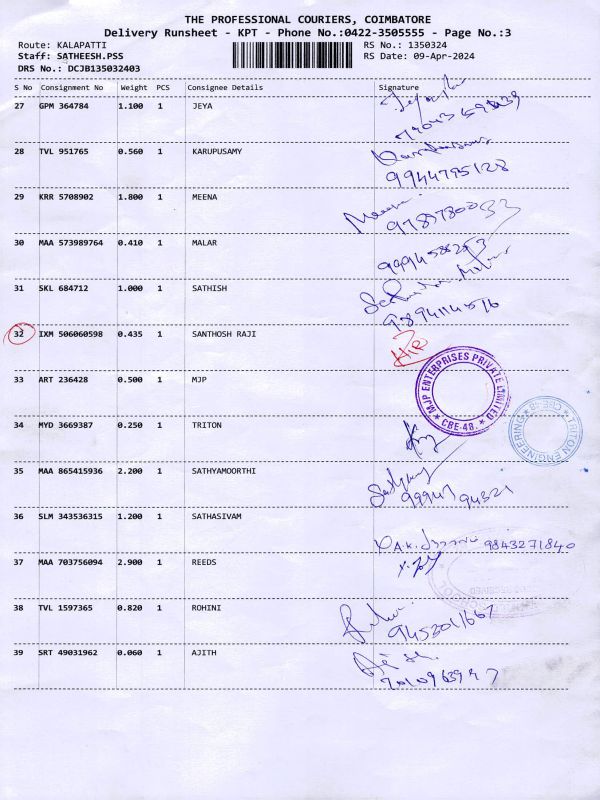 THE PROFESSIONAL COURIERS, COIMBATORE
Delivery Runsheet - KPT - Phone No.:0422-3505555 - Page No.:3
Route: KALAPATTI RS No.: 1350324
Staff: SATHEESH.PSS RS Date: 09-Apr-2024
DRS No.: DCJB135032403
S No Consignment No Weight PCS Consignee Details Signature
27 GPM 364784 1.100 1 JEYA
28 TVL 951765 0.560 1 KARUPUSAMY
9944795128
29 KRR 5708902 1.800 1 MEENA
30 MAA 573989764 0.410 1 MALAR
31 SKL 684712 1.000 1 SATHISH
32 IXM 506060598 0.435 1 SANTHOSH RAJI
33 ART 236428 0.500 1 MJP
MJP ENTERPRISES PRIVATE LIMITED
CBE-48.
34 MYD 3669387 0.250 1 TRITON
TRITON ENGINEERING
CBE-48
35 MAA 865415936 2.200 1 SATHYAMOORTHI
36 SLM 343536315 1.200 1 SATHASIVAM
9843271840
37 MAA 703756094 2.900 1 REEDS
38 TVL 1597365 0.820 1 ROHINI
9453011667
39 SRT 49031962 0.060 1 AJITH